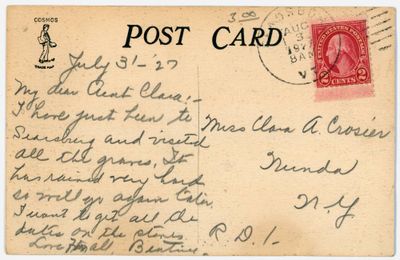 COSMOS
TRADE MARK
POST CARD
3.00
AUG
3
VT.
UNITED STATES POSTAGE
2 CENTS 2
July 31 - '27
My dear Aunt Clara; -
I have just been to
Searsburg and visited
all the graves. It
has rained very hard
so will go again later.
I want to get all the
dates on the stones
Love to all, Beatrice.
Miss Clara A. Crosier
Nunda
N.Y
R.D.1.